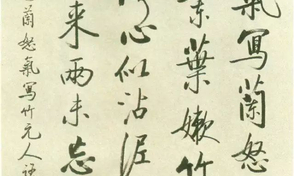 氣寫蘭怒
葉嫩竹
心似沾泥
来兩未忘
蘭怒氣寫竹元人